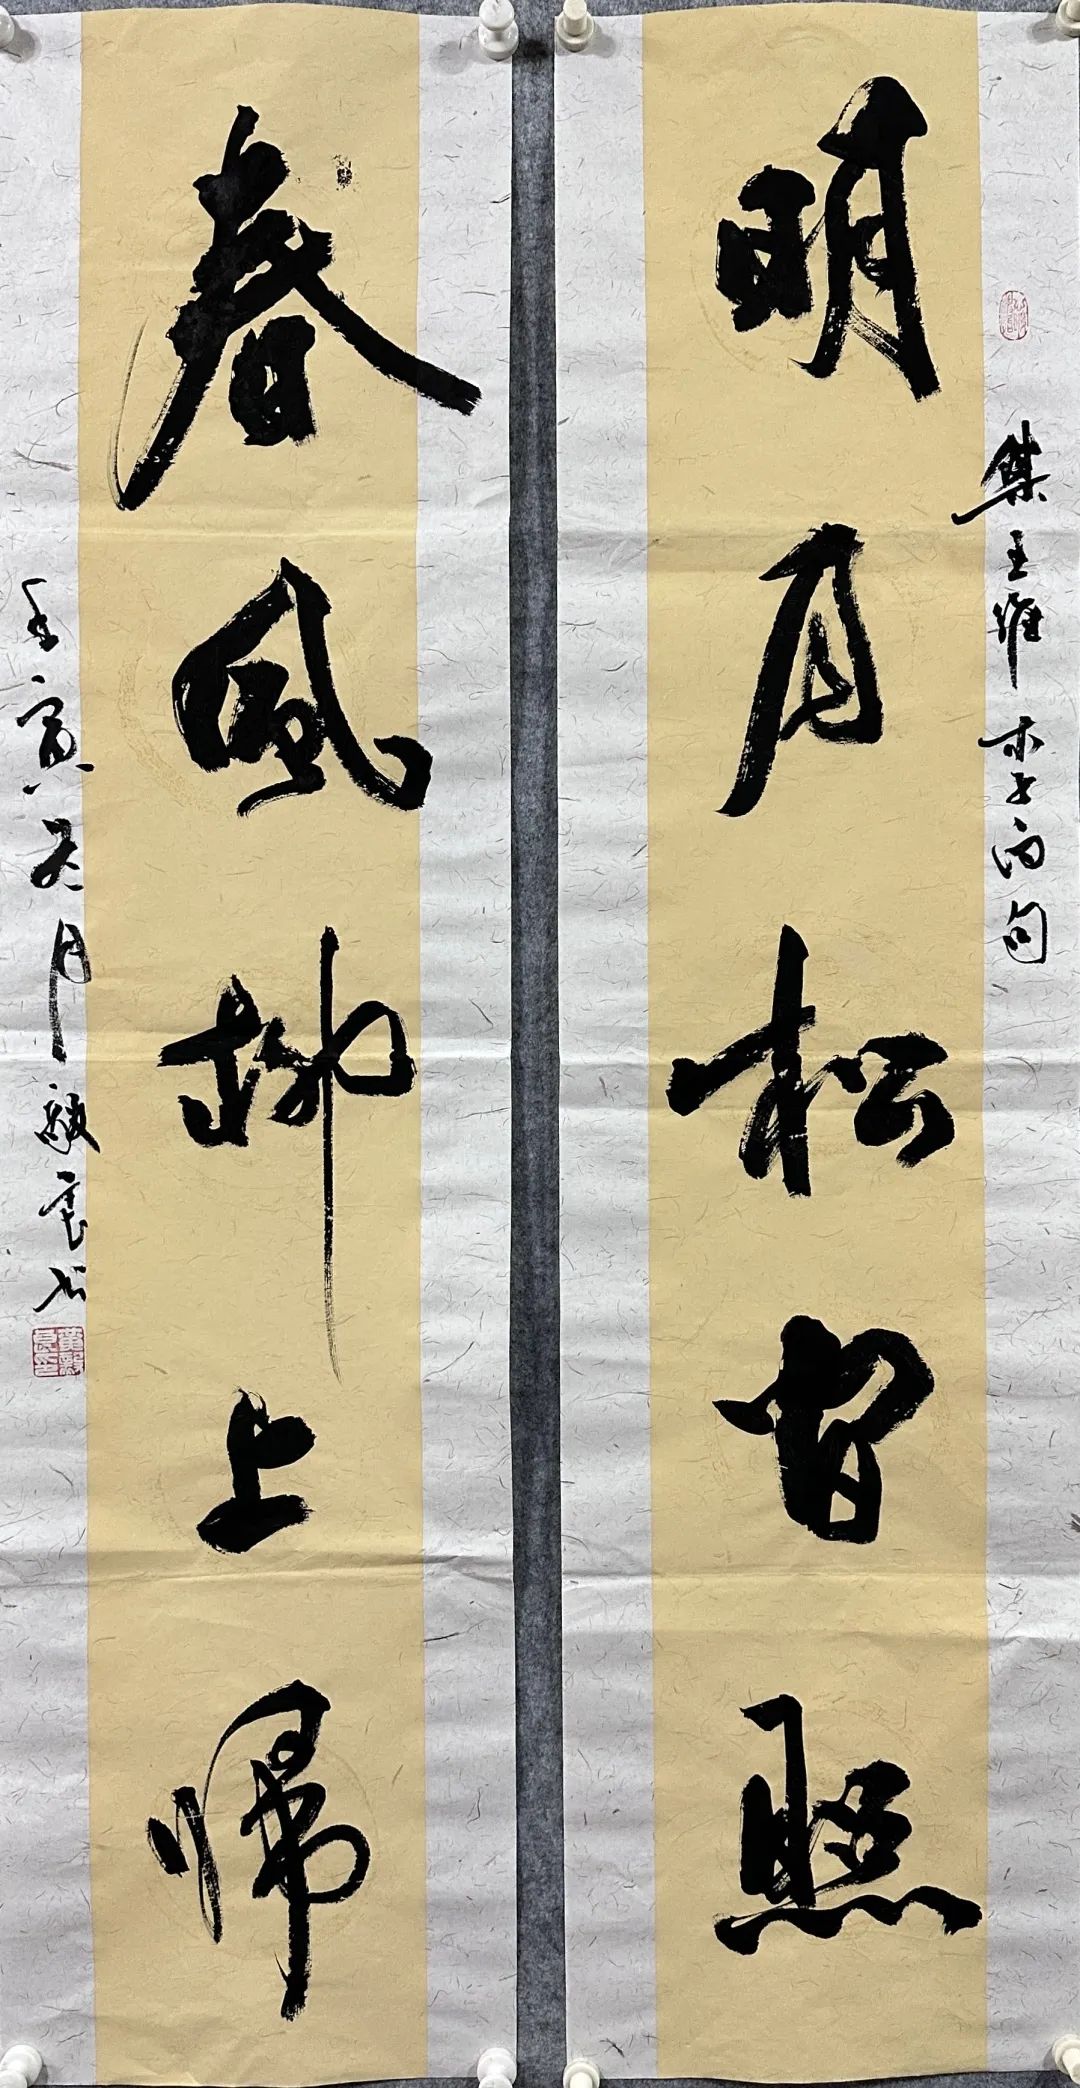 明月松間照
集王維李白句
春風柳上歸
壬寅月毅書